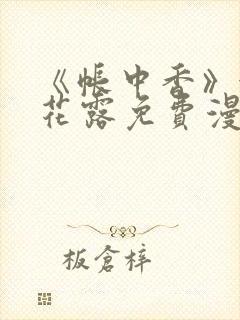 《帐中香》
花露免费漫
板倉梓